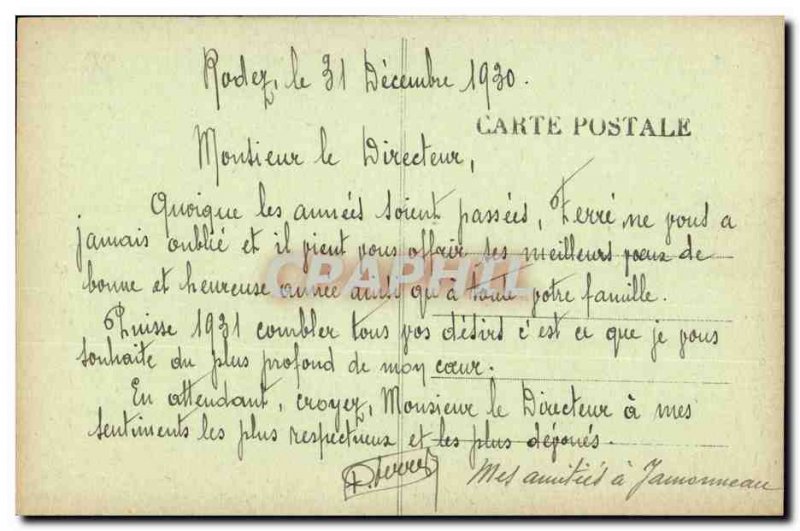 Rodez, le 31 Décembre 1930.
CARTE POSTALE
Monsieur le Directeur,
Quoique les années soient passées, Ferré, ne vous a
jamais oublié et il vient vous offrir ses meilleurs vœux de
bonne et heureuse année ainsi qu'à toute votre famille.
CPAPHIL
Puisse 1931 combler tous vos désirs c'est ce que je vous
souhaite du plus profond de mon cœur.
En attendant, croyez, Monsieur le Directeur à mes
sentiments les plus respectueux et les plus dévoués.
Mes amitiés à Jamonneau